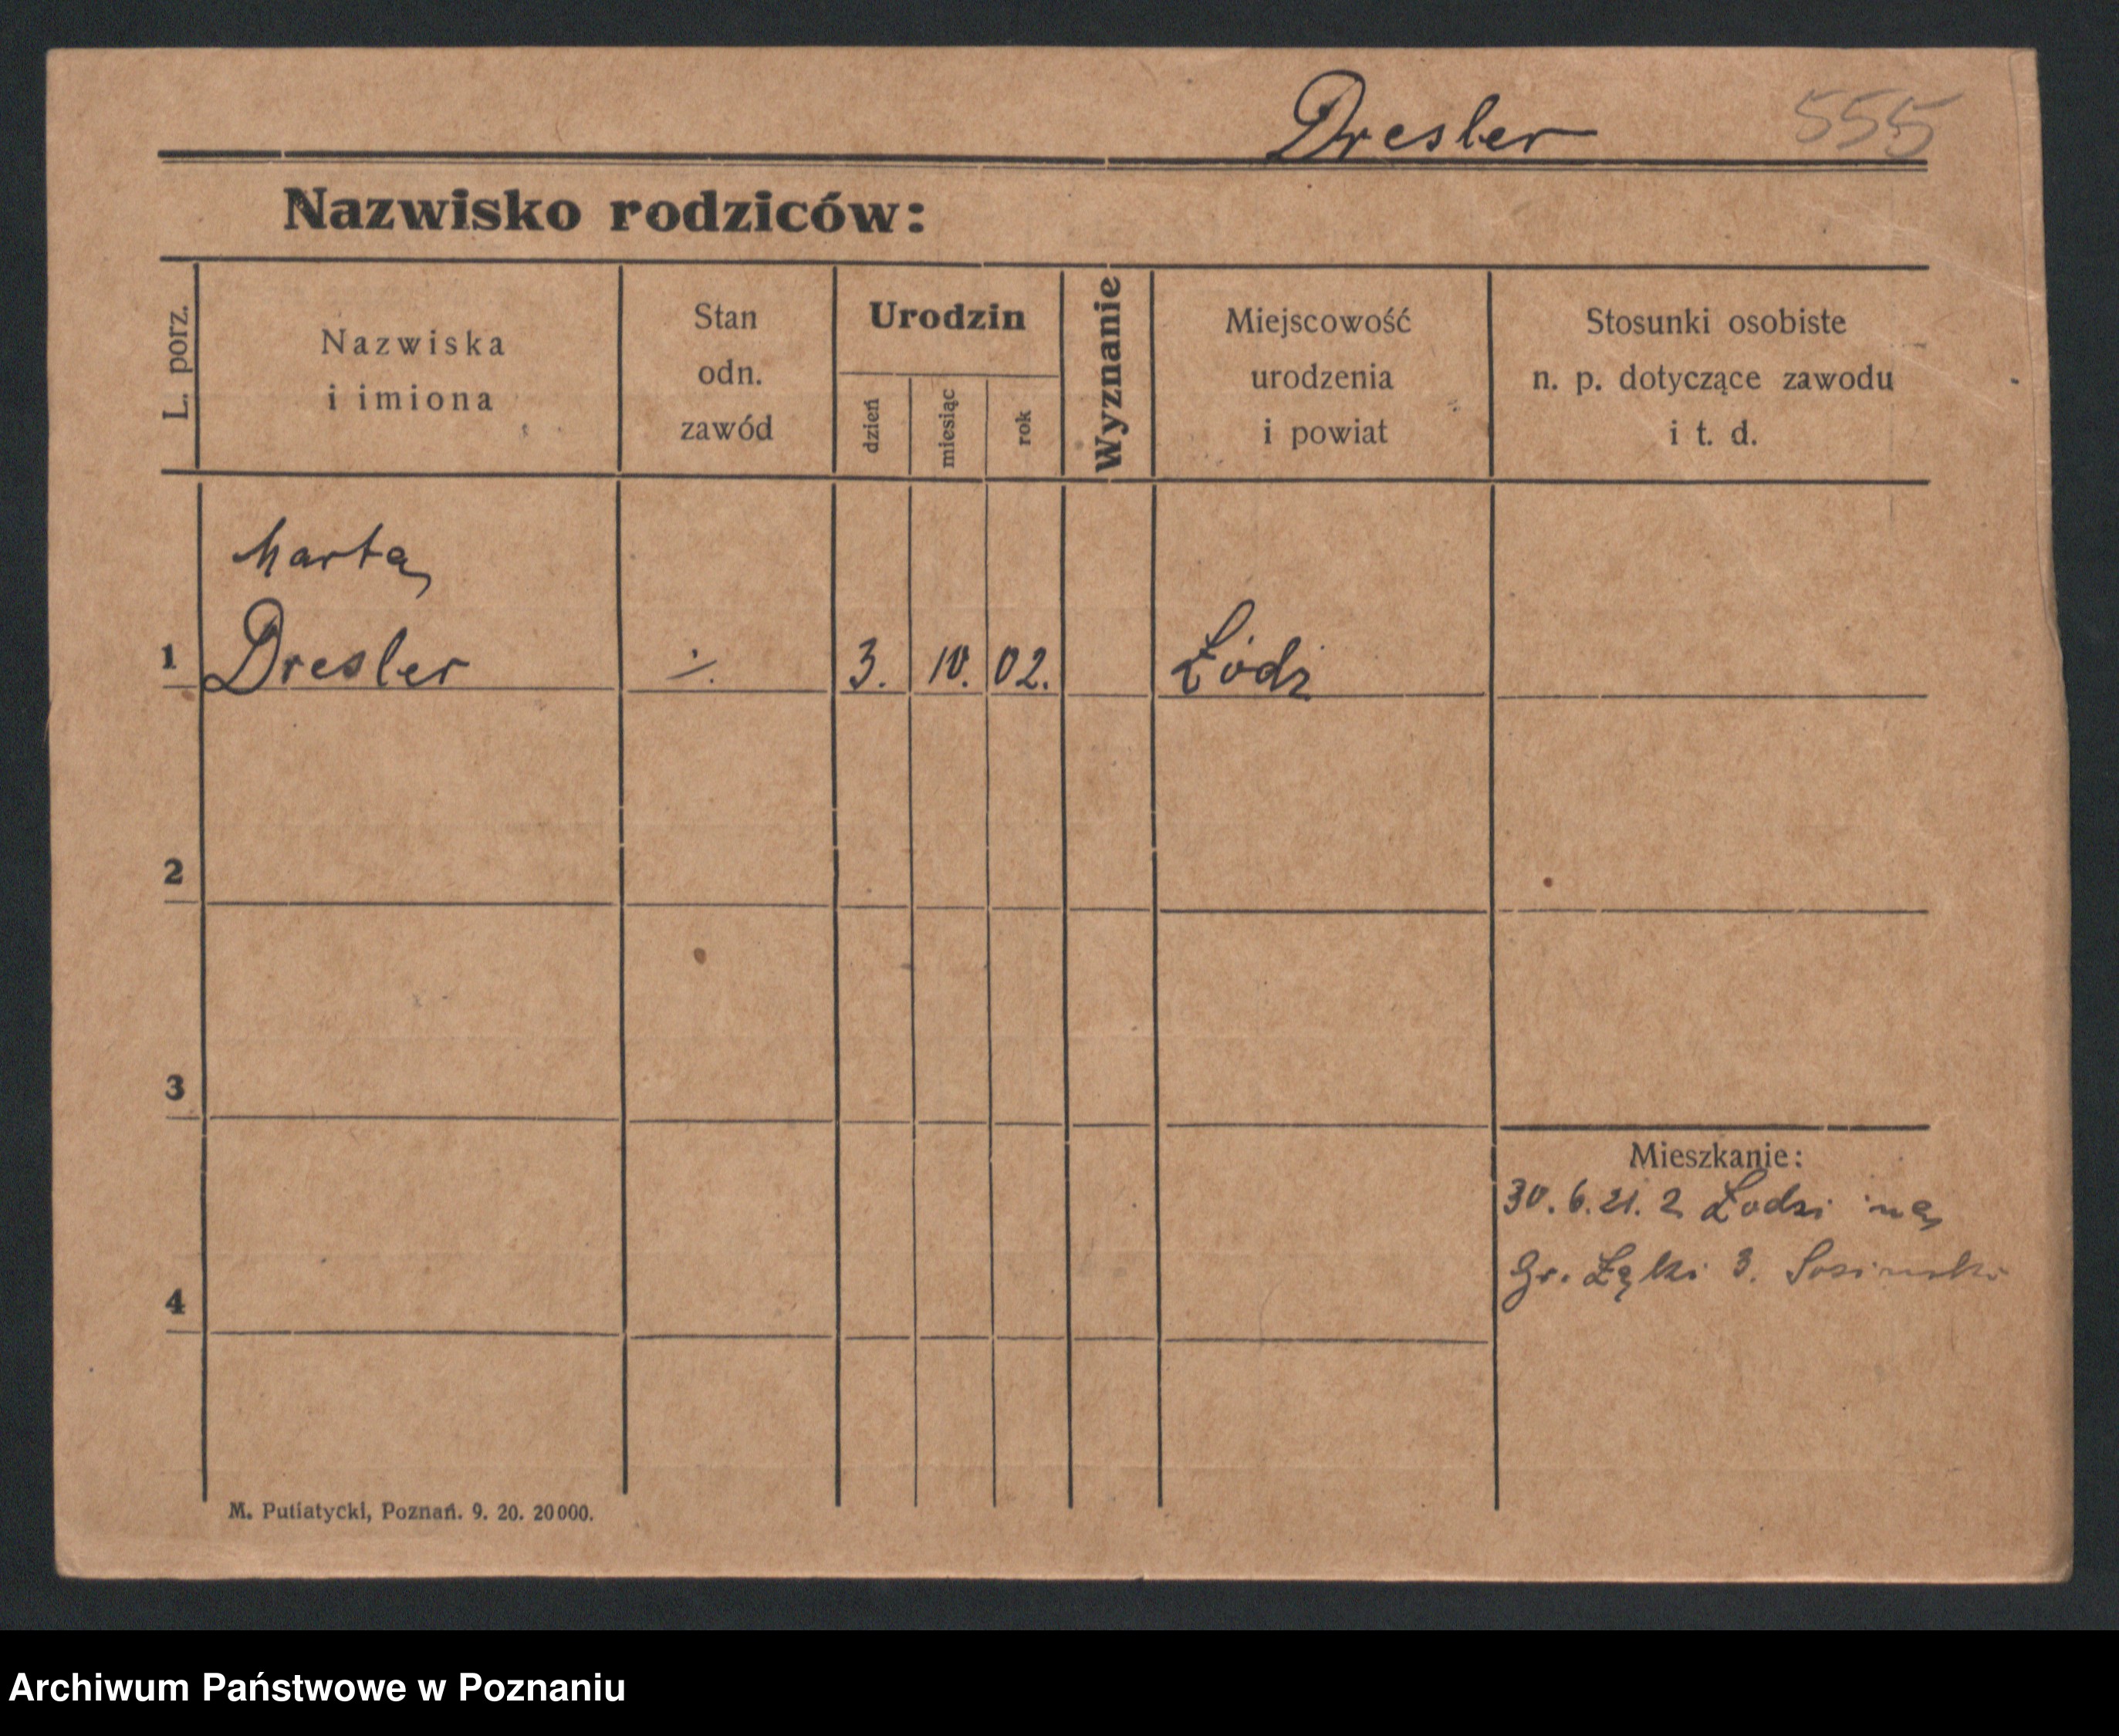 Dresler 555
Nazwisko rodziców:
L. porz.
Nazwiska
i imiona
Stan
odn.
zawód
Urodzin
dzień
miesiąc
rok
Wyznanie
Miejscowość
urodzenia
i powiat
Stosunki osobiste
n. p. dotyczące zawodu
i t. d.
Marta
1 Dresler ·/. 3. 10. 02. Łódź
2
3
Mieszkanie:
30. 6. 21. z Łodzi na
Gr. Łąki 3.
4
M. Putiatycki, Poznań. 9. 20. 20000.
Archiwum Państwowe w Poznaniu